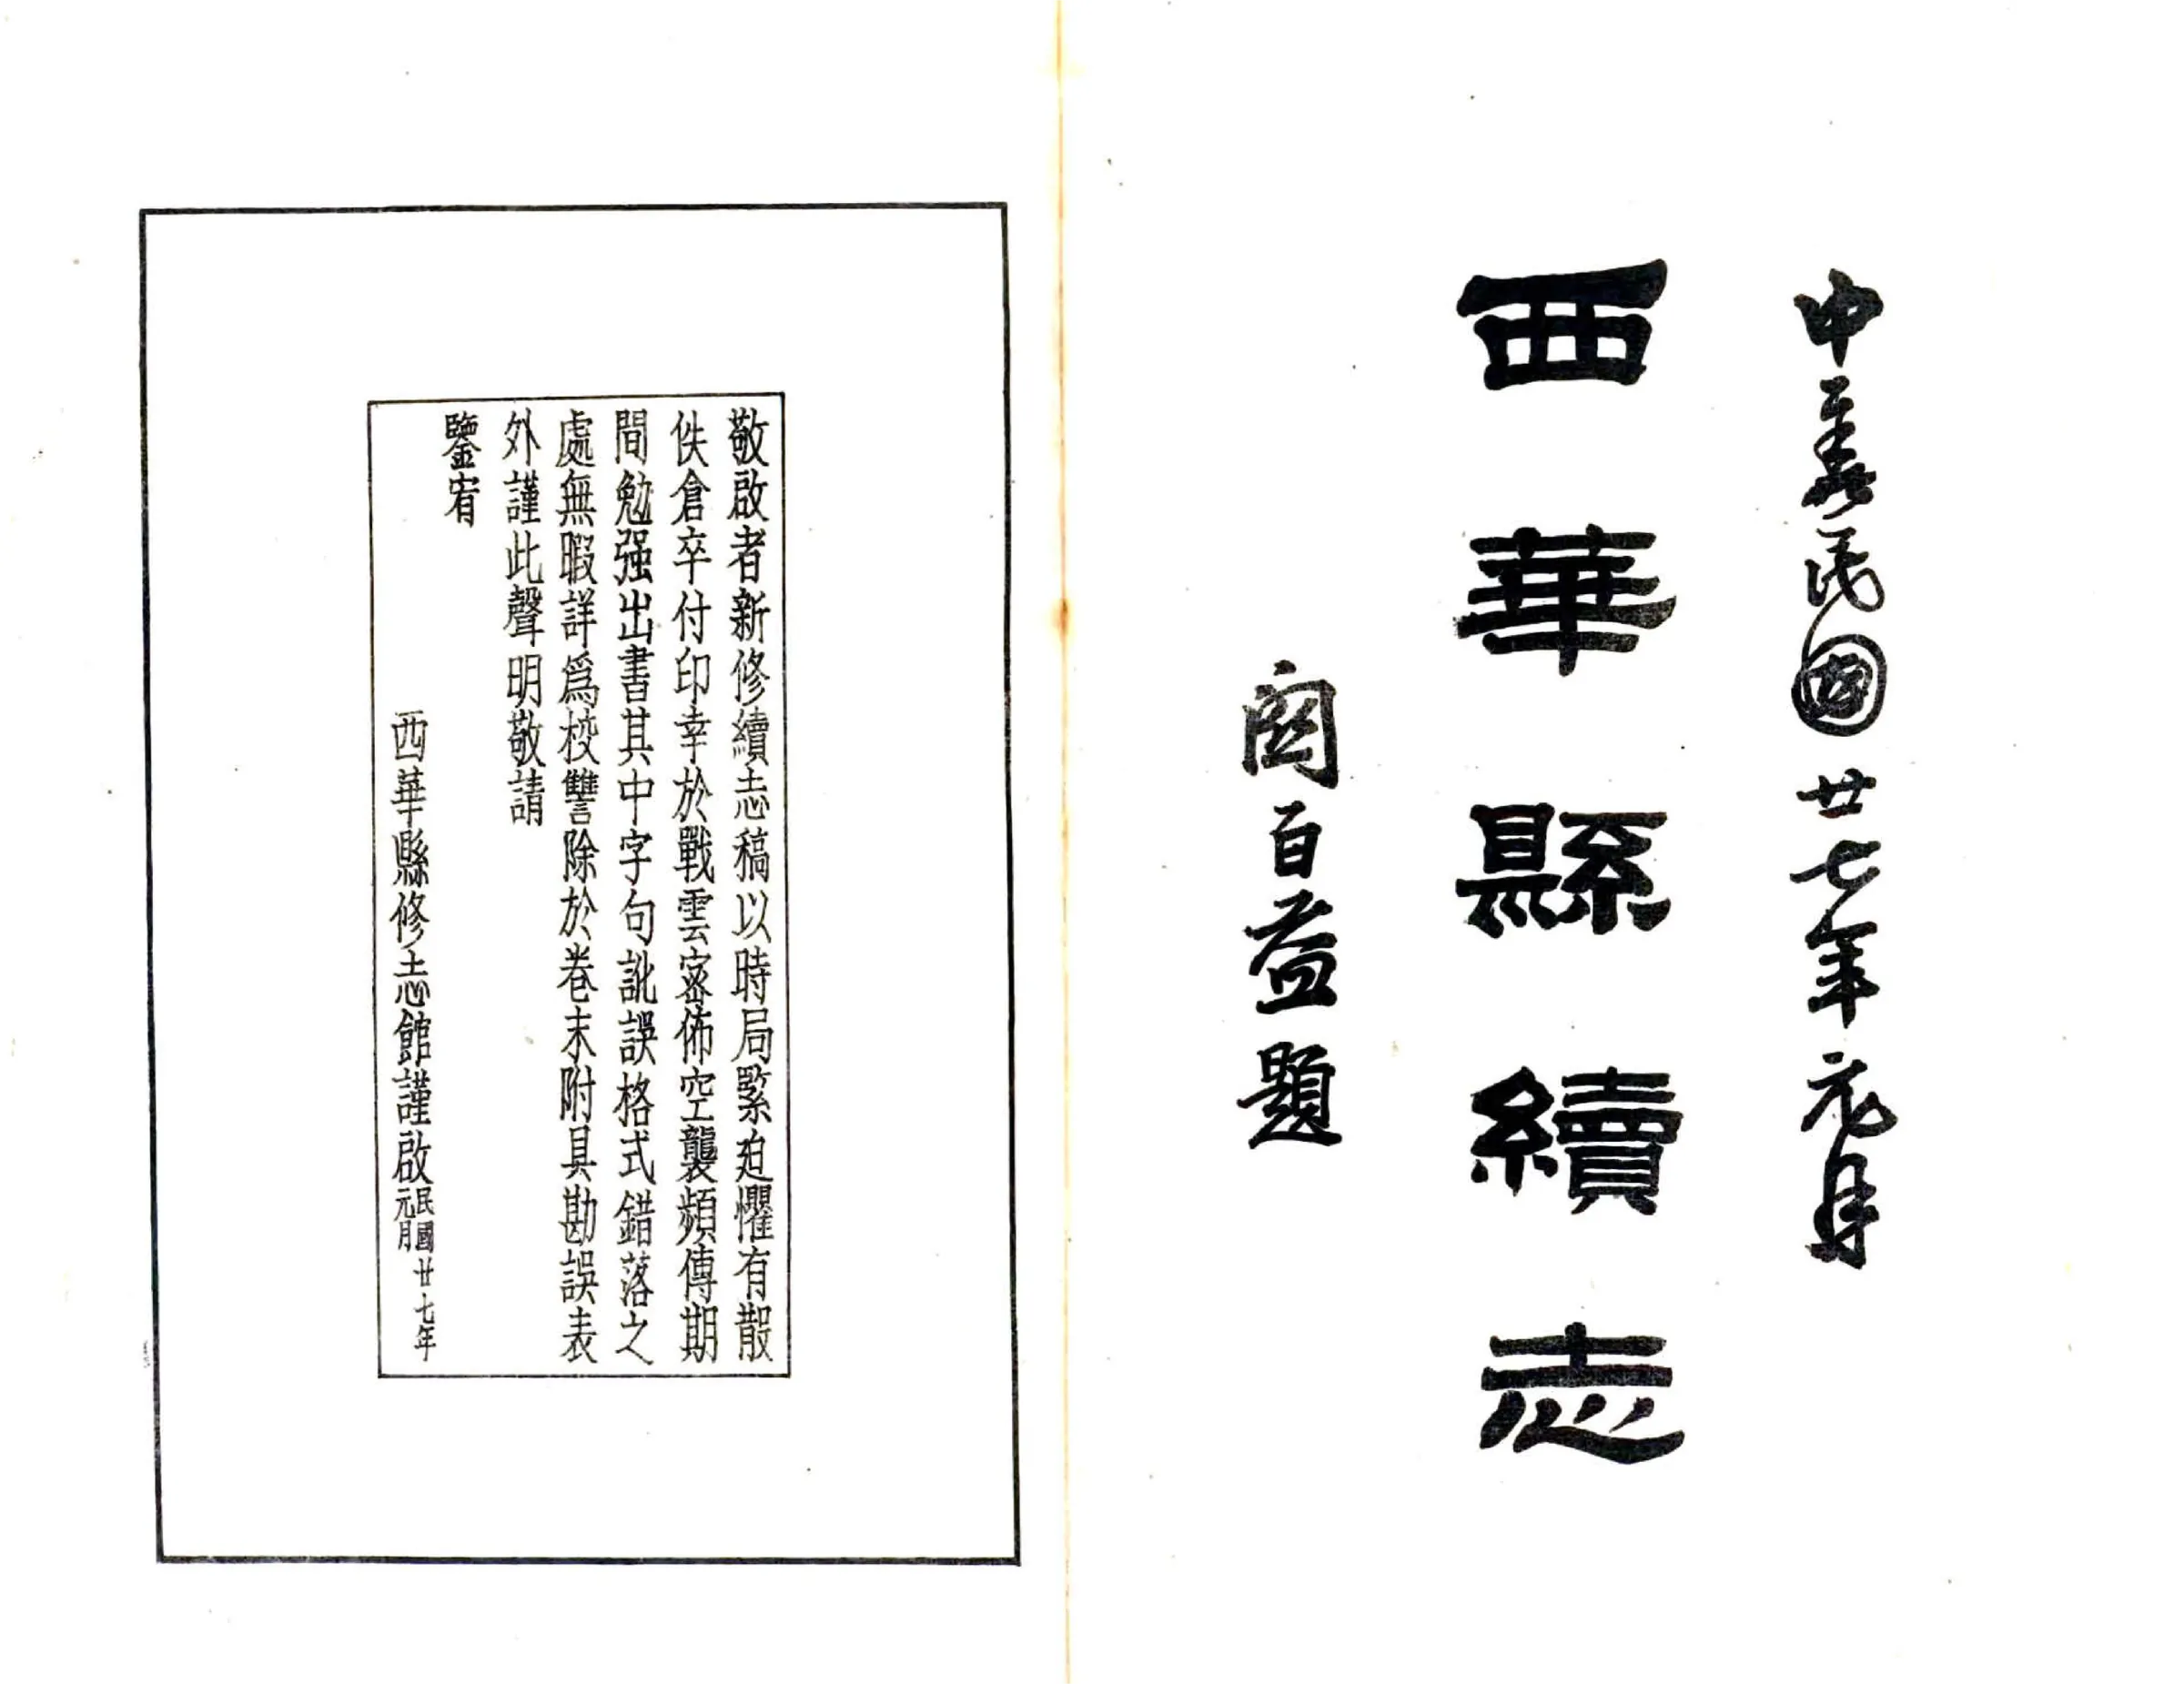 中華民國廿七年元月
西華縣續志
關百益題
敬啟者新修續志稿以時局緊迫懼有散
佚倉卒付印幸於戰雲密佈空襲頻傳期
間勉强出書其中字句訛誤格式錯落之
處無暇詳爲校讐除於卷末附具勘誤表
外謹此聲明敬請
鑒宥
西華縣修志館謹啟民國廿七年
元月